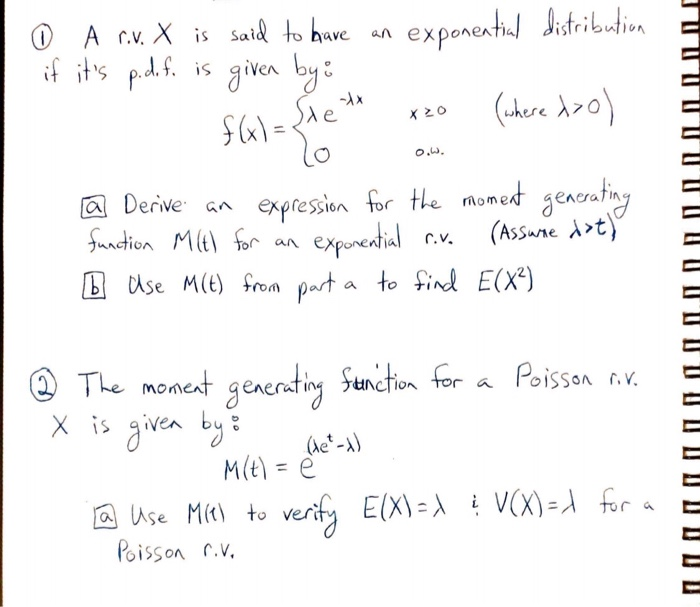 ① A r.v. X is said to have an exponential distribution
if it's p.d.f. is given by:
f(x) = { λe^-λx   x ≥ 0   (where λ>0)
0   o.w.
a Derive an expression for the moment generating
function M(t) for an exponential r.v. (Assume λ>t)
b Use M(t) from part a to find E(X²)
② The moment generating function for a Poisson r.v.
X is given by:
M(t) = e^(λe^t-λ)
a Use M(t) to verify E(X)=λ & V(X)=λ for a
Poisson r.v.